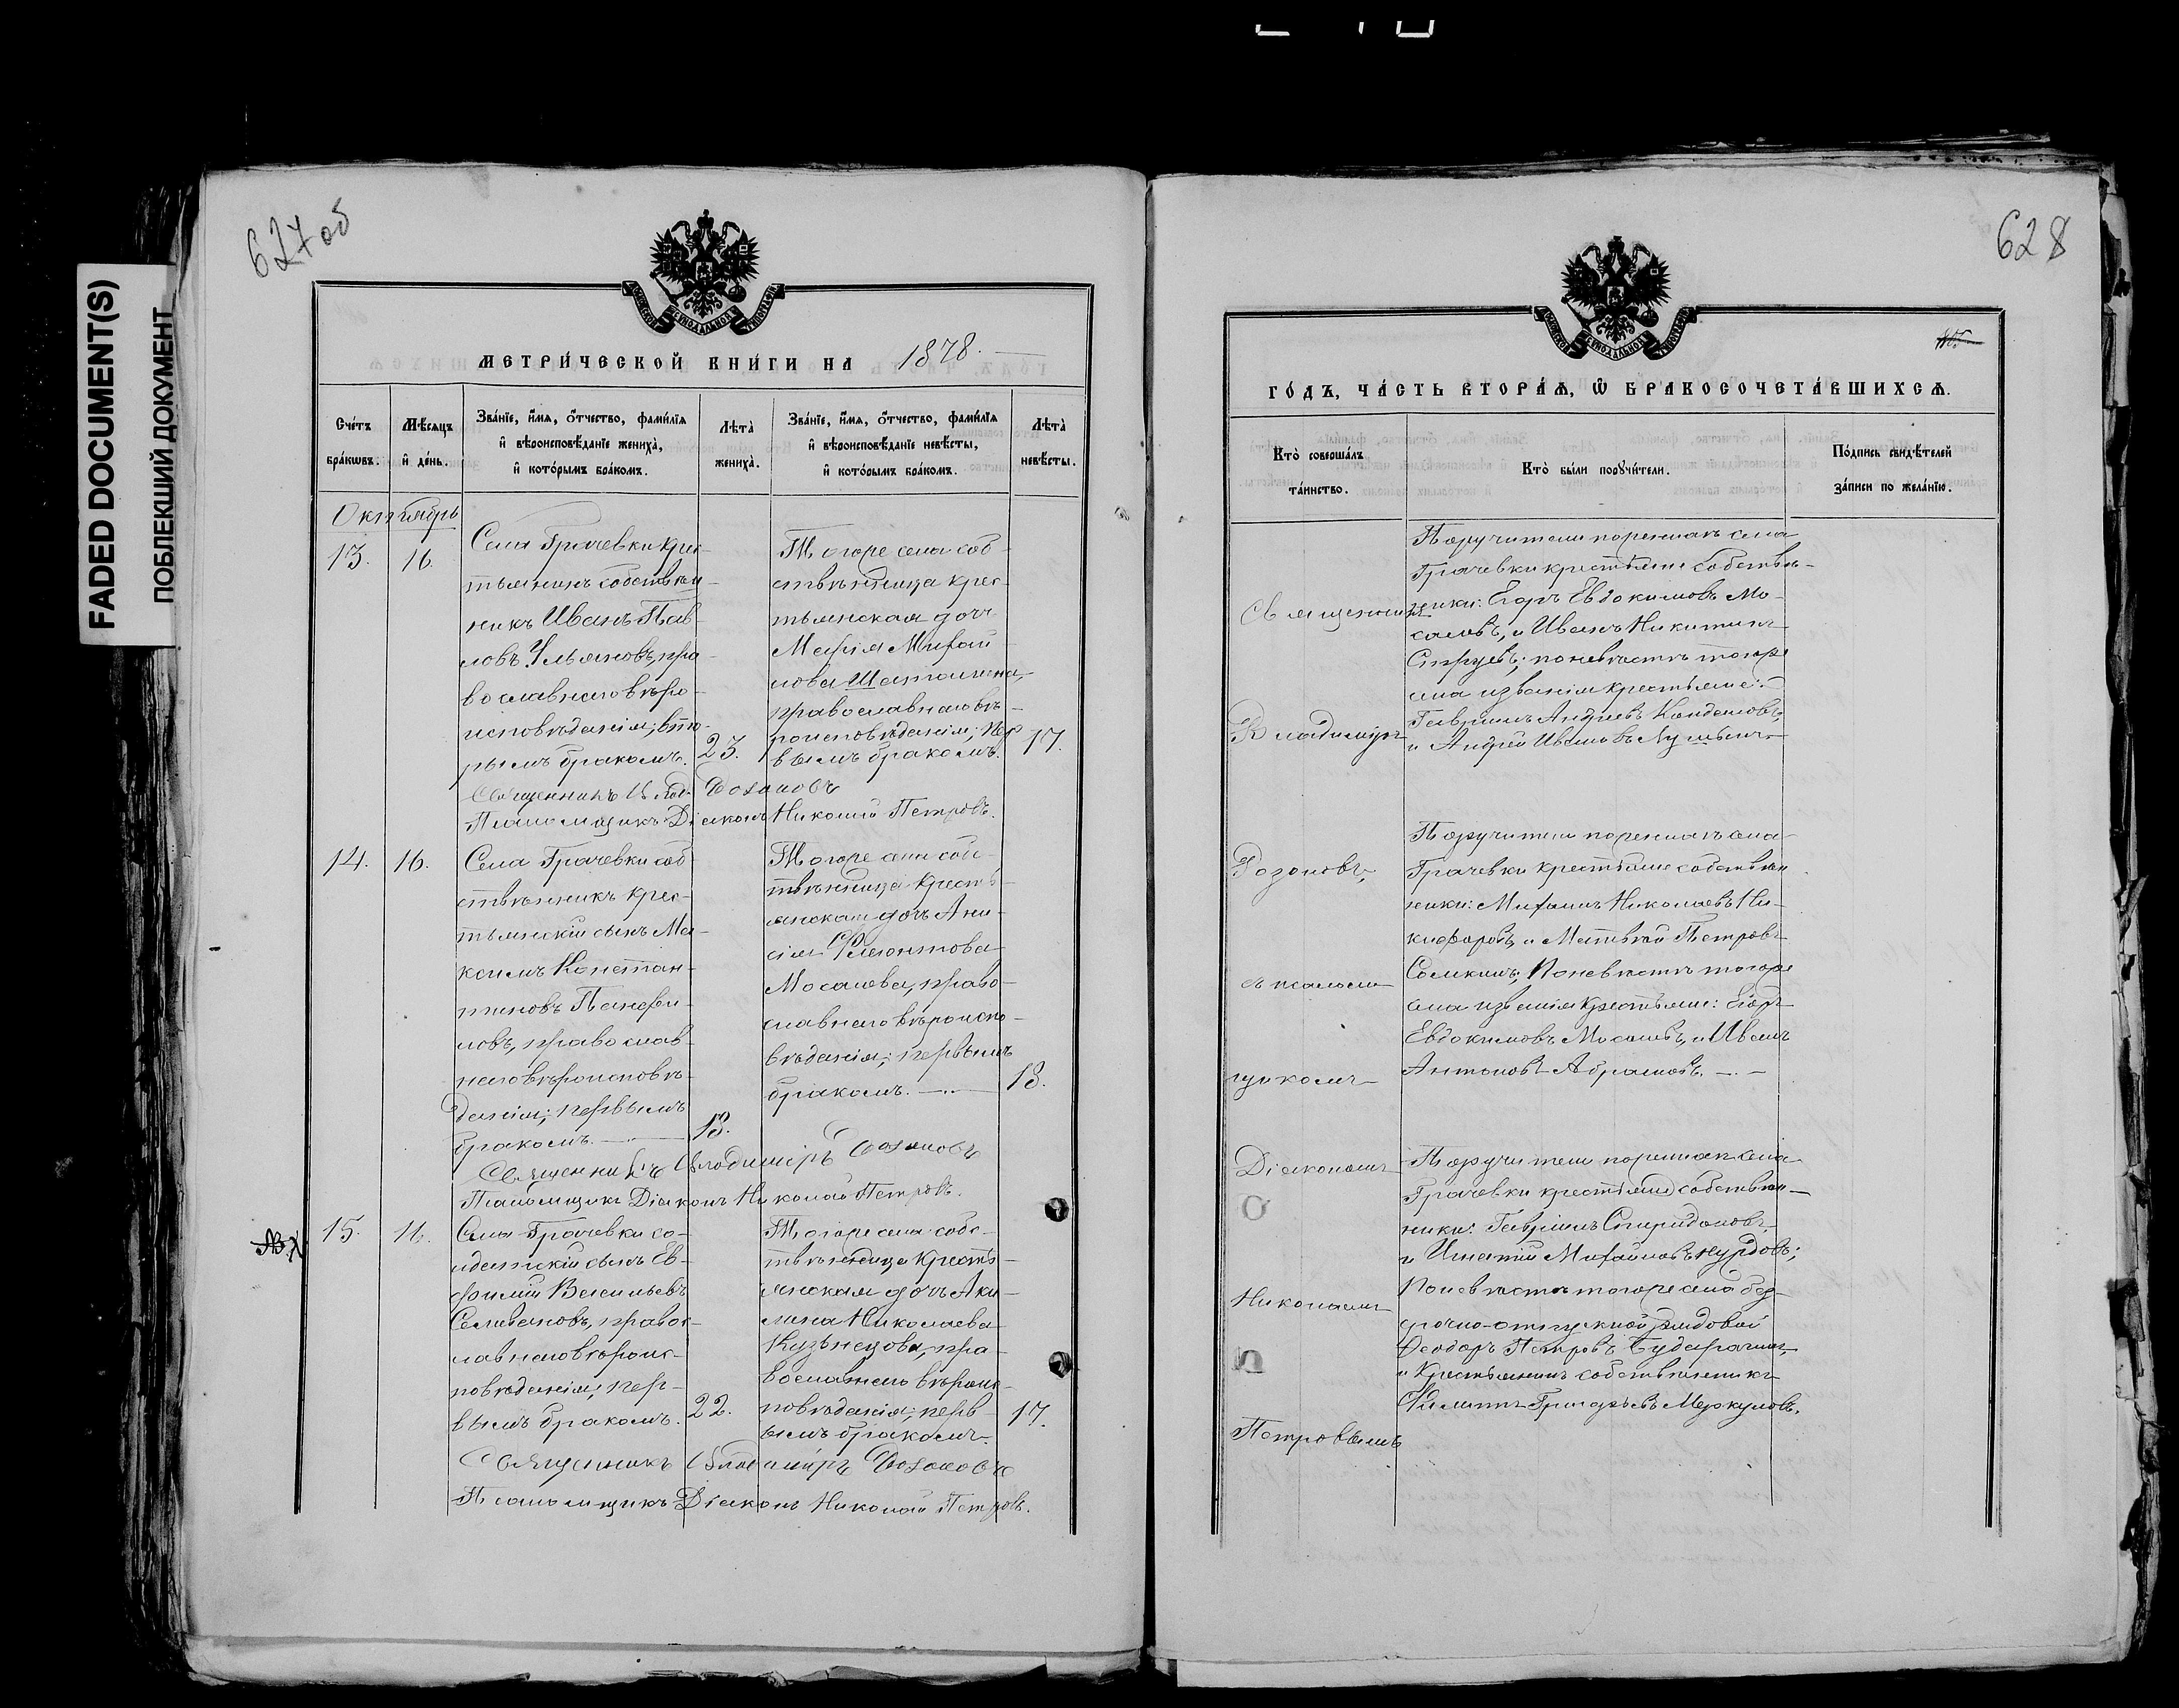 FADED DOCUMENT(S)
ПОБЛЕКШИЙ ДОКУМЕНТ
627 об
МЕТРИ́ЧЕСКОЙ КНИ́ГИ НА 1878.
Сче́тъ бра́кѡвъ.
Мѣ́сяцъ и҆ де́нь.
Зва́нїе, и҆́мѧ, ѻ҆́тчество, фами́лїѧ
и҆ вѣроисповѣ́данїе жениха̀,
и҆ кото́рымъ бра́комъ.
Лѣта̀ жениха̀.
Зва́нїе, и҆́мѧ, ѻ҆́тчество, фами́лїѧ
и҆ вѣроисповѣ́данїе невѣ́сты,
и҆ кото́рымъ бра́комъ.
Лѣта̀ невѣ́сты.
Октябрь
13.
16.
Села Грачевки крес-
тьянинъ собствен-
никъ Иванъ Пав-
ловъ Ульяновъ, пра-
вославнаго вѣро-
исповѣданія; вто-
рымъ бракомъ.
23.
Тогоже села соб-
ственница крес-
тьянская дочь
Марія Михай-
лова
православнаго вѣ-
роисповѣданія; пер-
вымъ бракомъ.
17.
Священникъ Влад. Розановъ
Псаломщикъ Діаконъ Николай Петровъ.
14.
16.
Села Грачевки соб-
ственникъ крес-
тьянскій сынъ Ма-
ксимъ Констан-
тиновъ Панфи-
ловъ, православ-
наго вѣроисповѣ-
данія; первымъ
бракомъ.
18.
Тогоже села соб-
ственница кресть-
янская дочь Ани-
сія Филонтова
Мосалова, право-
славнаго вѣроиспо-
вѣданія; первымъ
бракомъ.
18.
Священникъ Владимиръ Розановъ
Псаломщикъ Діаконъ Николай Петровъ.
15.
16.
Села Грачевки со-
лдатскій сынъ Ев-
фимій Васильевъ
Селивановъ, правос-
лавнаго вѣроис-
повѣданія; пер-
вымъ бракомъ.
22.
Тогоже села собс-
твенница кресть-
янская дочь Аку-
лина Николаева
Кузнецова, пра-
вославнаго вѣроис-
повѣданія; перв-
ымъ бракомъ.
17.
Священникъ Владимиръ Розановъ
Псаломщикъ Діаконъ Николай Петровъ.
628
ГО́ДЪ, ЧА́СТЬ ВТОРА́Ѧ, Ѽ БРАКОСОЧЕТА́ВШИХСѦ.
Кто̀ соверша́лъ
та́инство.
Кто̀ бы́ли порꙋчи́тели.
По́дпись свидѣ́телей
за́писи по жела́нїю.
Священникъ
Владимиръ
Розановъ,
съ псалом-
щикомъ
Діакономъ
Николаемъ
Петровымъ
Поручители по женихѣ села
Грачевки крестьяне собствен-
ники: Егоръ Евдокимовъ Мо-
саловъ, и Иванъ Никитинъ
по невѣстѣ тогоже
села званія крестьяне:
Гавріилъ Андреевъ
и Андрей Ивановъ
Поручители по женихѣ села
Грачевки крестьяне собствен-
ники: Михаилъ Николаевъ Ни-
кифоровъ, и Матвѣй Петровъ
Сомкинъ; по невѣстѣ тогоже
села званія крестьяне: Егоръ
Евдокимовъ Мосаловъ, и Иванъ
Антоновъ Абрамовъ.
Поручители по женихѣ села
Грачевки крестьяне собствен-
ники: Гавріилъ Спиридоновъ
и Игнатій Михайловъ
по невѣстѣ тогоже села без-
срочно-отпускной рядовой
Ѳеодоръ Петровъ Бударагинъ,
и крестьянинъ собственникъ
Филиппъ Григорьевъ Меркуловъ.